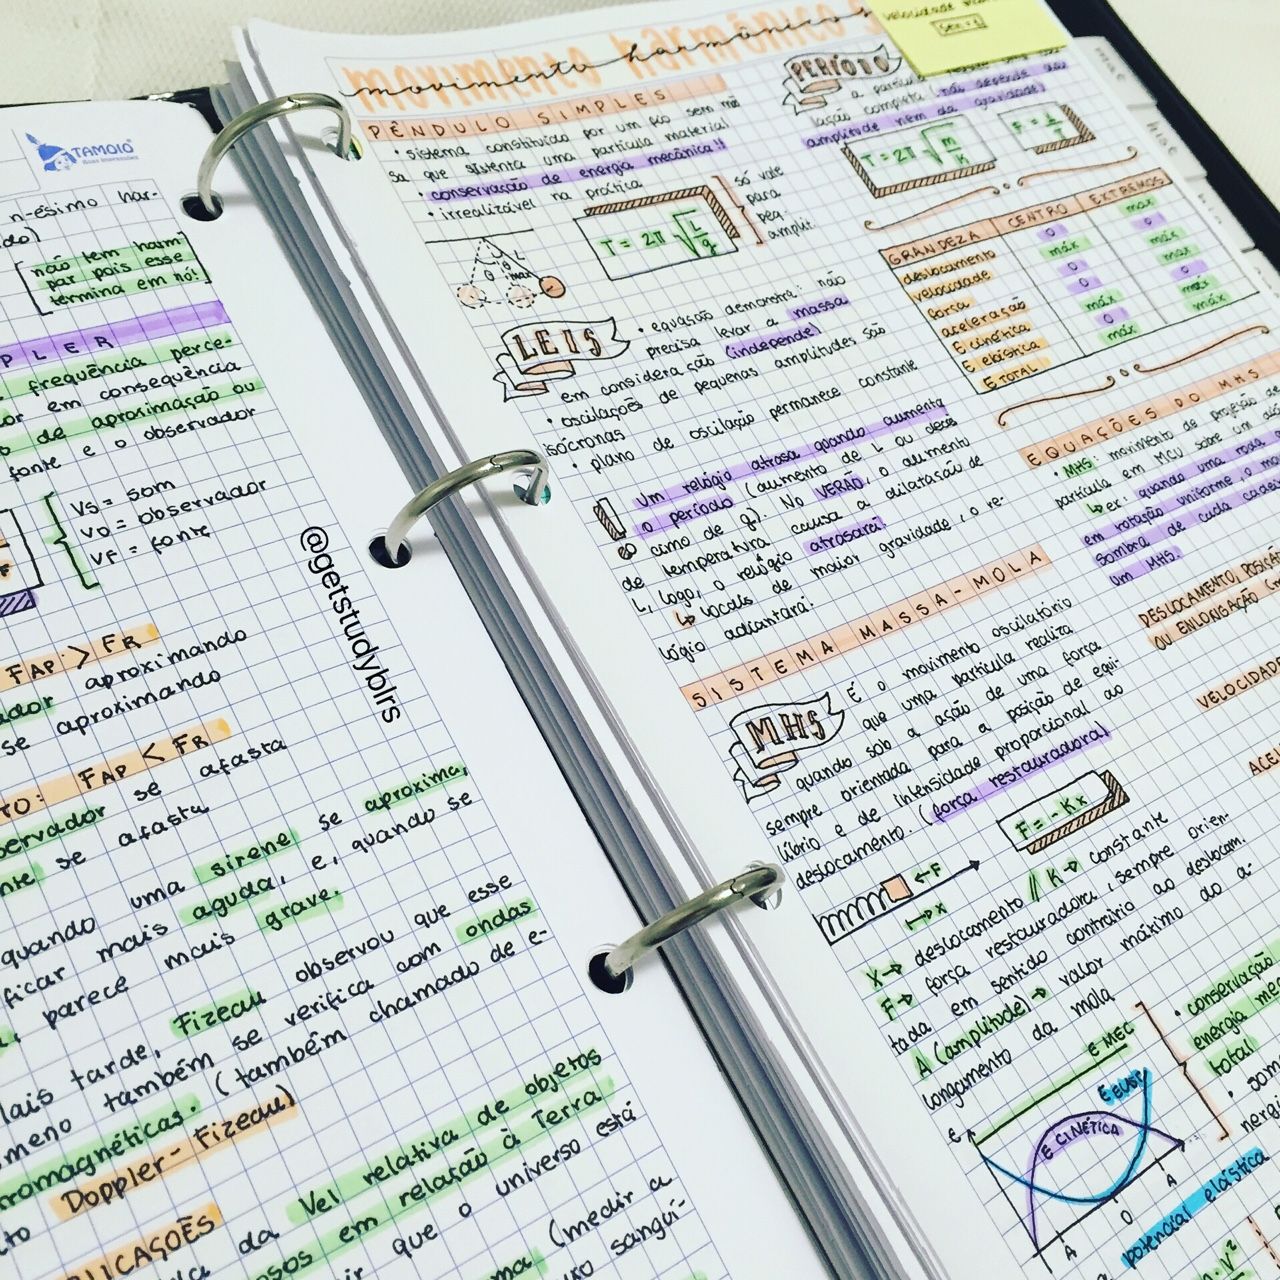 TAMOIO
n-ésimo har-
não tem harm
par pois esse
termina em nós!
PLER
frequência perce-
or em consequência
o de aproximação ou
fonte e o observador
Vs = som
Vo = observador
Vf = fonte
FAP > FR
ador aproximando
se aproximando
TO: FAP < FR
servador se afasta
nte se afasta
quando uma sirene se aproxima,
ficar mais aguda, e, quando se
, parece mais grave.
ais tarde, Fizeau observou que esse
meno também se verifica com ondas
romagnéticas. (também chamado de e-
to Doppler-Fizeau)
LICAÇÕES
da Vel relativa de objetos
sos em relação à Terra
ir que o universo está
ma (medir a
sanguí-
@getstudyblrs
movimento harmônico s
PÊNDULO SIMPLES
• sistema constituído por um fio sem ma
sa que sustenta uma partícula material
• conservação de energia mecânica!!
• irrealizável na prática
T = 2π √L/g
só vale
para
peq.
amplit.
θ θ máx L
LEIS
• equação demonstra: não
precisa levar a massa
em consideração (independe)
• oscilações de pequenas amplitudes são
isócronas
• plano de oscilação permanece constante
Um relógio atrasa quando aumenta
o período (aumento de L ou decés
cimo de g). No VERÃO, o aumento
de temperatura causa a dilatação de
L, logo, o relógio atrasará!
↳ locais de maior gravidade, o re-
lógio adiantará!
SISTEMA MASSA-MOLA
MHS
É o movimento oscilatório
que uma partícula realiza
quando sob a ação de uma força
sempre orientada para a posição de equi-
líbrio e de intensidade proporcional ao
deslocamento. (força restauradora)
F = -Kx
←F
↦x
X→ deslocamento // K→ constante
F→ força restauradora, sempre orien-
tada em sentido contrário ao deslocam.
A (amplitude)→ valor máximo do a-
longamento da mola
E MEC
E ELÁST
E CINÉTICA
E
-A
O
A
• conservação
energia me
total
• som
nergi
potencial elástica
velocidade
PERÍODO
a partícula
lação completa (não depende da
amplitude nem da gravidade)
T = 2π √m/K
F = 1/T
GRANDEZA CENTRO EXTREMOS
deslocamento 0 max
velocidade máx 0
força 0 máx
aceleração 0 máx
E cinética máx 0
E elástica 0 máx
E TOTAL máx máx
EQUAÇÕES DO MHS
• MHS: movimento de projeção de
partícula em MCU sobre um di
↳ ex: quando uma roda
em rotação uniforme, o mov
sombra de cada cadei
um MHS.
DESLOCAMENTO, POSIÇÃO
OU ELONGAÇÃO
VELOCIDADE
ACEL